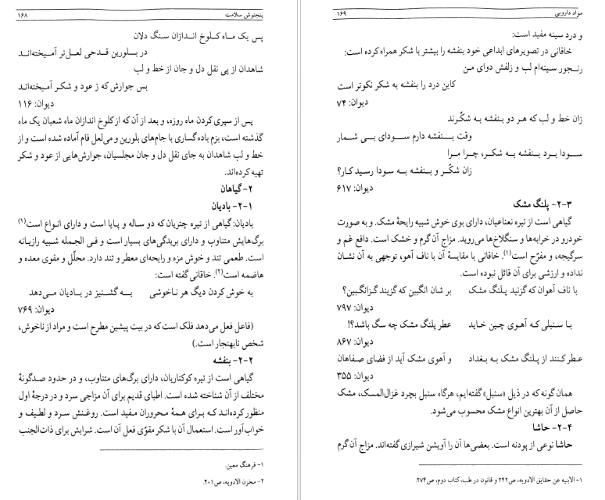 پنجنوش سلامت ۱۶۸
پس یک ماه کلوخ اندازان سنگ دلان
در بلورین قدحی لعل‌تر آمیخته‌اند
شاهدان از پی نقل دل و جان از خط و لب
بس جوارش که ز عود و شکر آمیخته‌اند
دیوان: ۱۱۶
پس از سپری کردن ماه روزه، و بعد از آن که از کلوخ اندازان ماه شعبان یک ماه
گذشته است، بزم باده گساری با جام‌های بلورین و می‌لعل فام آماده شده است و از
خط و لب شاهدان به جای نقل دل و جان مجلسیان، جوارش‌هایی از عود و شکر
تهیه کرده‌اند.
۲- گیاهان
۲-۱- بادیان
بادیان: گیاهی از تیره چتریان که دو ساله و پایا است و دارای انواع است(۱)
برگ‌هایش متناوب و دارای بریدگی‌های بسیار است و فی الجمله شبیه رازیانه
است. طعمی تند و خوش مزه و رایحه‌ای معطر و تند دارد. محلّل و مقوی معده و
هاضمه است(۲). خاقانی گفته است:
به خوش کردن دیگ هر ناخوشی به گشنیز در بادیان می‌دهد
دیوان: ۷۶۹
(فاعل فعل می‌دهد فلک است که در بیت پیشین مطرح است و مراد از ناخوش،
شخص نابهنجار است.)
۲-۲- بنفشه
گیاهی است از تیره کوکناریان، دارای برگ‌های متناوب، و در حدود صدگونهٔ
مختلف از آن شناخته شده است. اطبای قدیم برای آن مزاجی سرد و در درجهٔ اول
منظور کرده‌اند که برای همهٔ محروران مفید است. روغنش سرد و لطیف و
خواب‌آور است. استعمال آن با شکر مقوّی فعل آن است. شرابش برای ذات‌الجنب
۱- فرهنگ معین.
۲- مخزن الادویه، ص۲۰۱.
مواد دارویی ۱۶۹
و درد سینه مفید است:
خاقانی در تصویرهای ابداعی خود بنفشه را بیشتر با شکر همراه کرده است:
رنجور سینه‌ام لب و زلفش دوای من
کاین درد را بنفشه به شکر نکوتر است
دیوان: ۷۴
زان خط و لب که هر دو بنفشه به شکّرند
وقت بنفشه دارم سودای بی شمار
سودا برد بنفشه به شکر، چرا مرا
زان شکّر و بنفشه به سودا رسید کار؟
دیوان: ۶۱۷
۲-۳- پلنگ مشک
گیاهی است از تیره نعناعیان، دارای بوی خوش شبیه رایحهٔ مشک. و به صورت
خودرو در خرابه‌ها و سنگلاخ‌ها می‌روید. مزاج آن گرم و خشک است. دافع غم و
سرگیجه، و مفرّح است(۱). خاقانی با مقایسهٔ آن با ناف آهو، توجهی به آن نشان
نداده و ارزشی برای آن قائل نبوده است.
با ناف آهوان که گزنید پلنگ مشک بر شان انگبین که گزیند گزانگبین؟
دیوان: ۷۹۷
با سنبلی که آهوی چین خاید عطر پلنگ مشک چه سگ باشد؟!
دیوان: ۸۶۷
عطر کنند از پلنگ مشک به بغداد و آهوی مشک آید از فضای صفاهان
دیوان: ۳۵۵
همان گونه که در ذیل «سنبل» گفته‌ایم، هرگاه سنبل بچرد غزال‌المسک، مشک
حاصل از آن بهترین انواع مشک محسوب می‌شود.
۲-۴- حاشا
حاشا نوعی از پودنه است. بعضی‌ها آن را آویشن شیرازی گفته‌اند. مزاج آن گرم
۱- الابنیه عن حقایق الادویه، ص۲۴۲ و قانون در طب، کتاب دوم، ص۲۷۴.